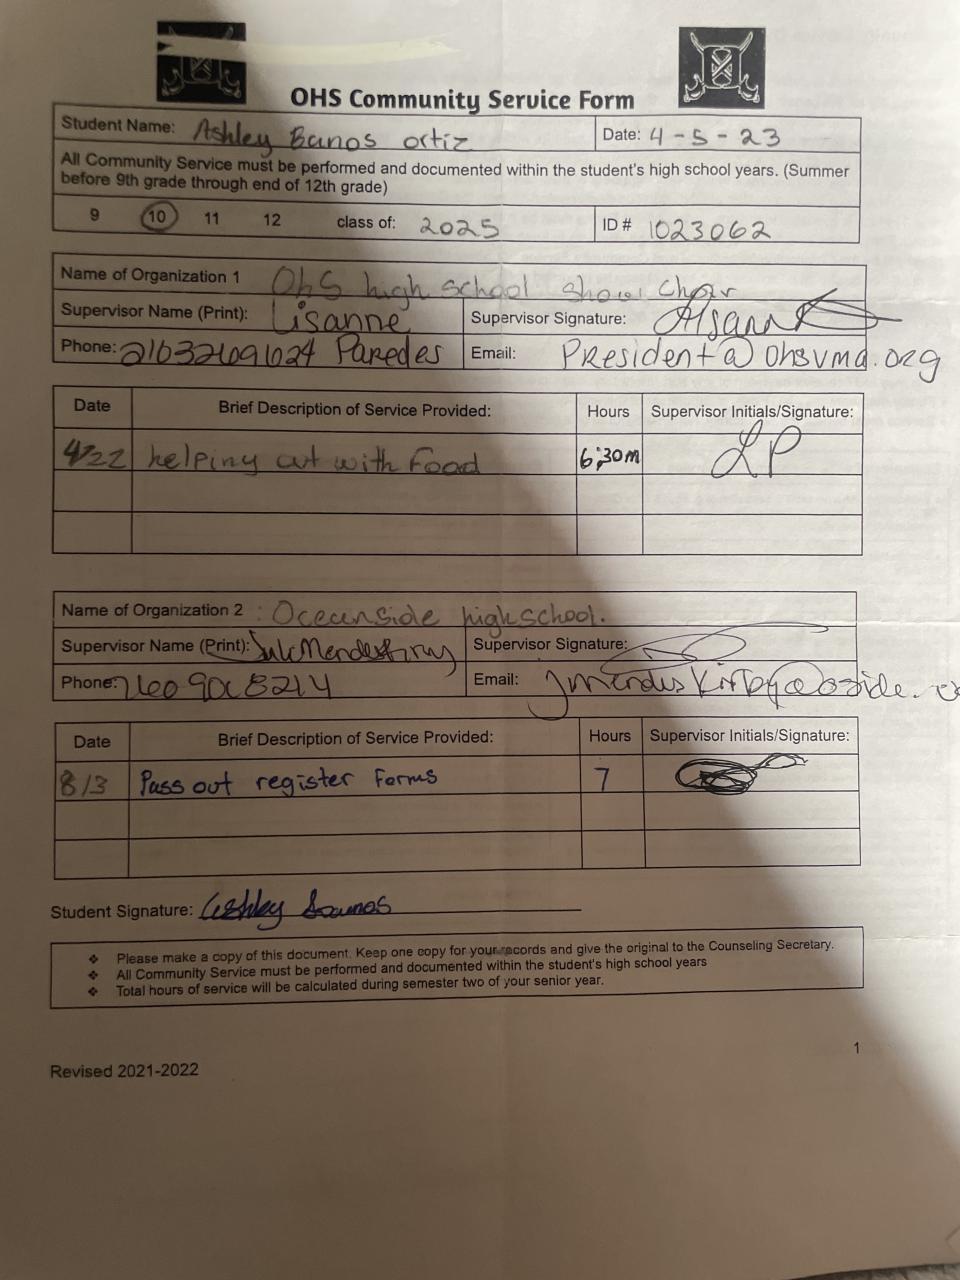 OHS Community Service Form
Student Name: Ashley Banos ortiz Date: 4-5-23
All Community Service must be performed and documented within the student's high school years. (Summer
before 9th grade through end of 12th grade)
9 10 11 12 class of: 2025 ID # 1023062
Name of Organization 1 OhS high school show Choir
Supervisor Name (Print): Lisanne Supervisor Signature:
Phone: Paredes Email: PResident@ohsvma.org
Date Brief Description of Service Provided: Hours Supervisor Initials/Signature:
4/22 helping out with Food 6:30m LP
Name of Organization 2 : Oceanside highschool.
Supervisor Name (Print): Supervisor Signature:
Phone: Email:
Date Brief Description of Service Provided: Hours Supervisor Initials/Signature:
8/3 Pass out register Forms 7
Student Signature: Ashley Banos
❖ Please make a copy of this document. Keep one copy for your records and give the original to the Counseling Secretary.
❖ All Community Service must be performed and documented within the student's high school years
❖ Total hours of service will be calculated during semester two of your senior year.
1
Revised 2021-2022